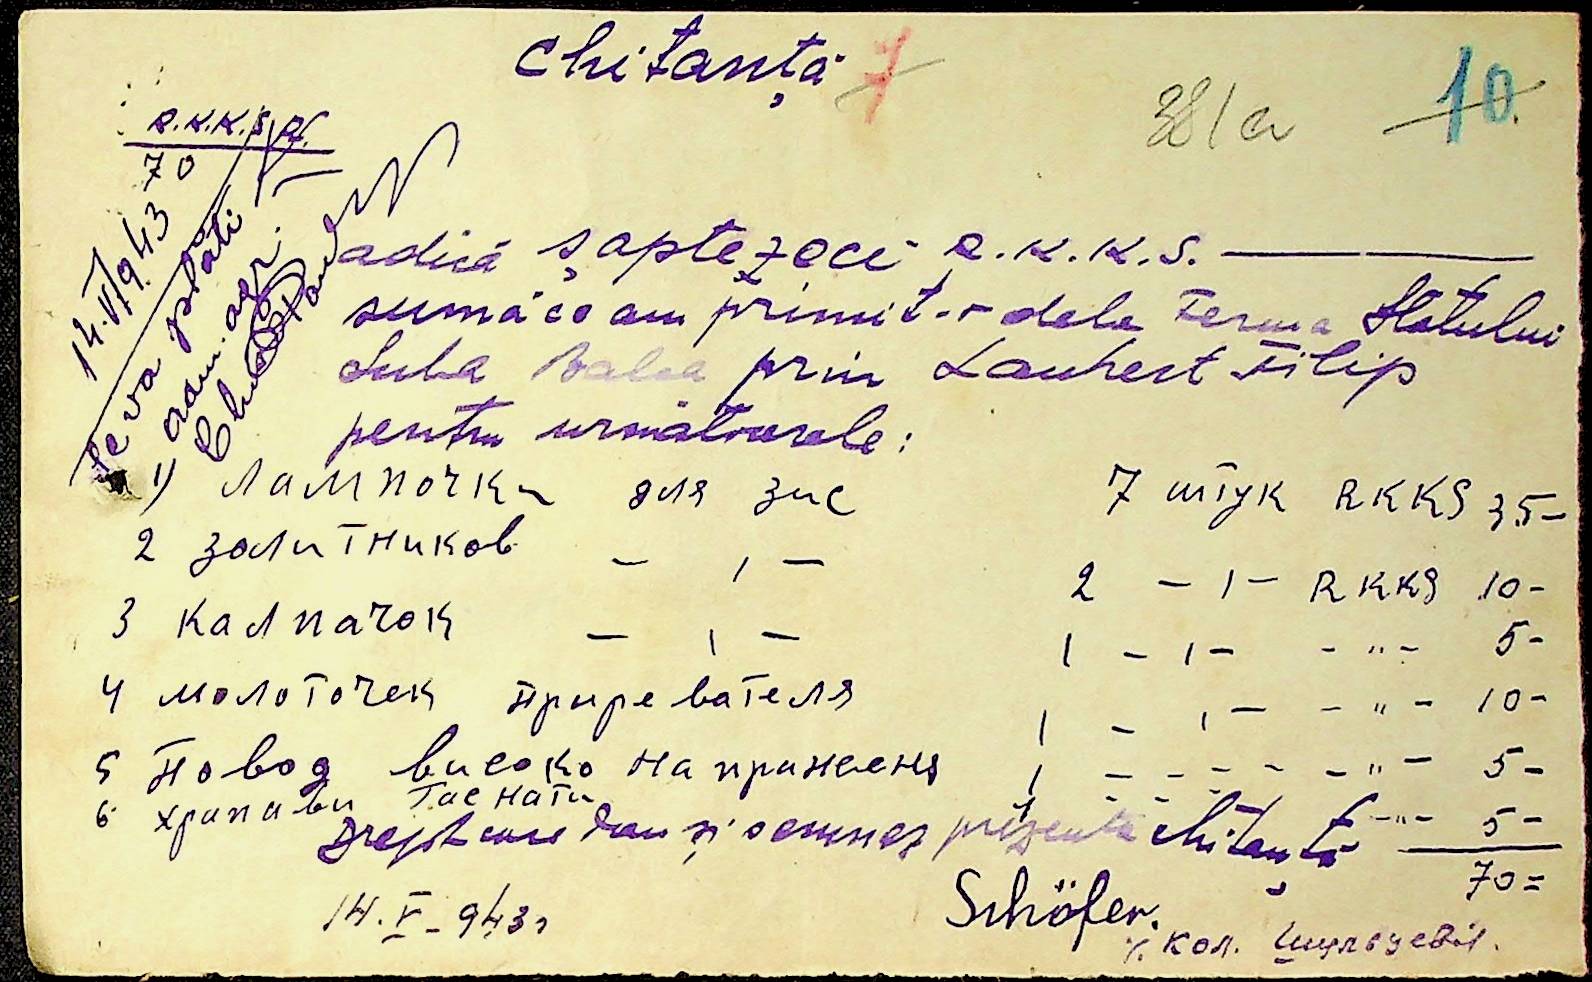 Chitanță 7
38/a 10
R.K.K.S.
70
14.VI 943
Se va plăti
adm. agr.
adică șaptezeci R.K.K.S.
sumă ce am primit-o dela Ferma Statului
Suha Balca prin Lauhert Filip
pentru următoarele:
1) Лампочки для зис 7 штук RKKS 35-
2 золитников - , - 2 - ı - RKKS 10-
3 Калпачок - , - 1 - ı - - " - 5-
4 молоточекприревателя 1 - , - - " - 10-
5 Повод високо напряжения 1 - - - - - " - 5-
6 храпави 1 - " - 5-
Drept care dau și semnez prezenta chitanță
70=
14.V-943
Schöfer.
кол.